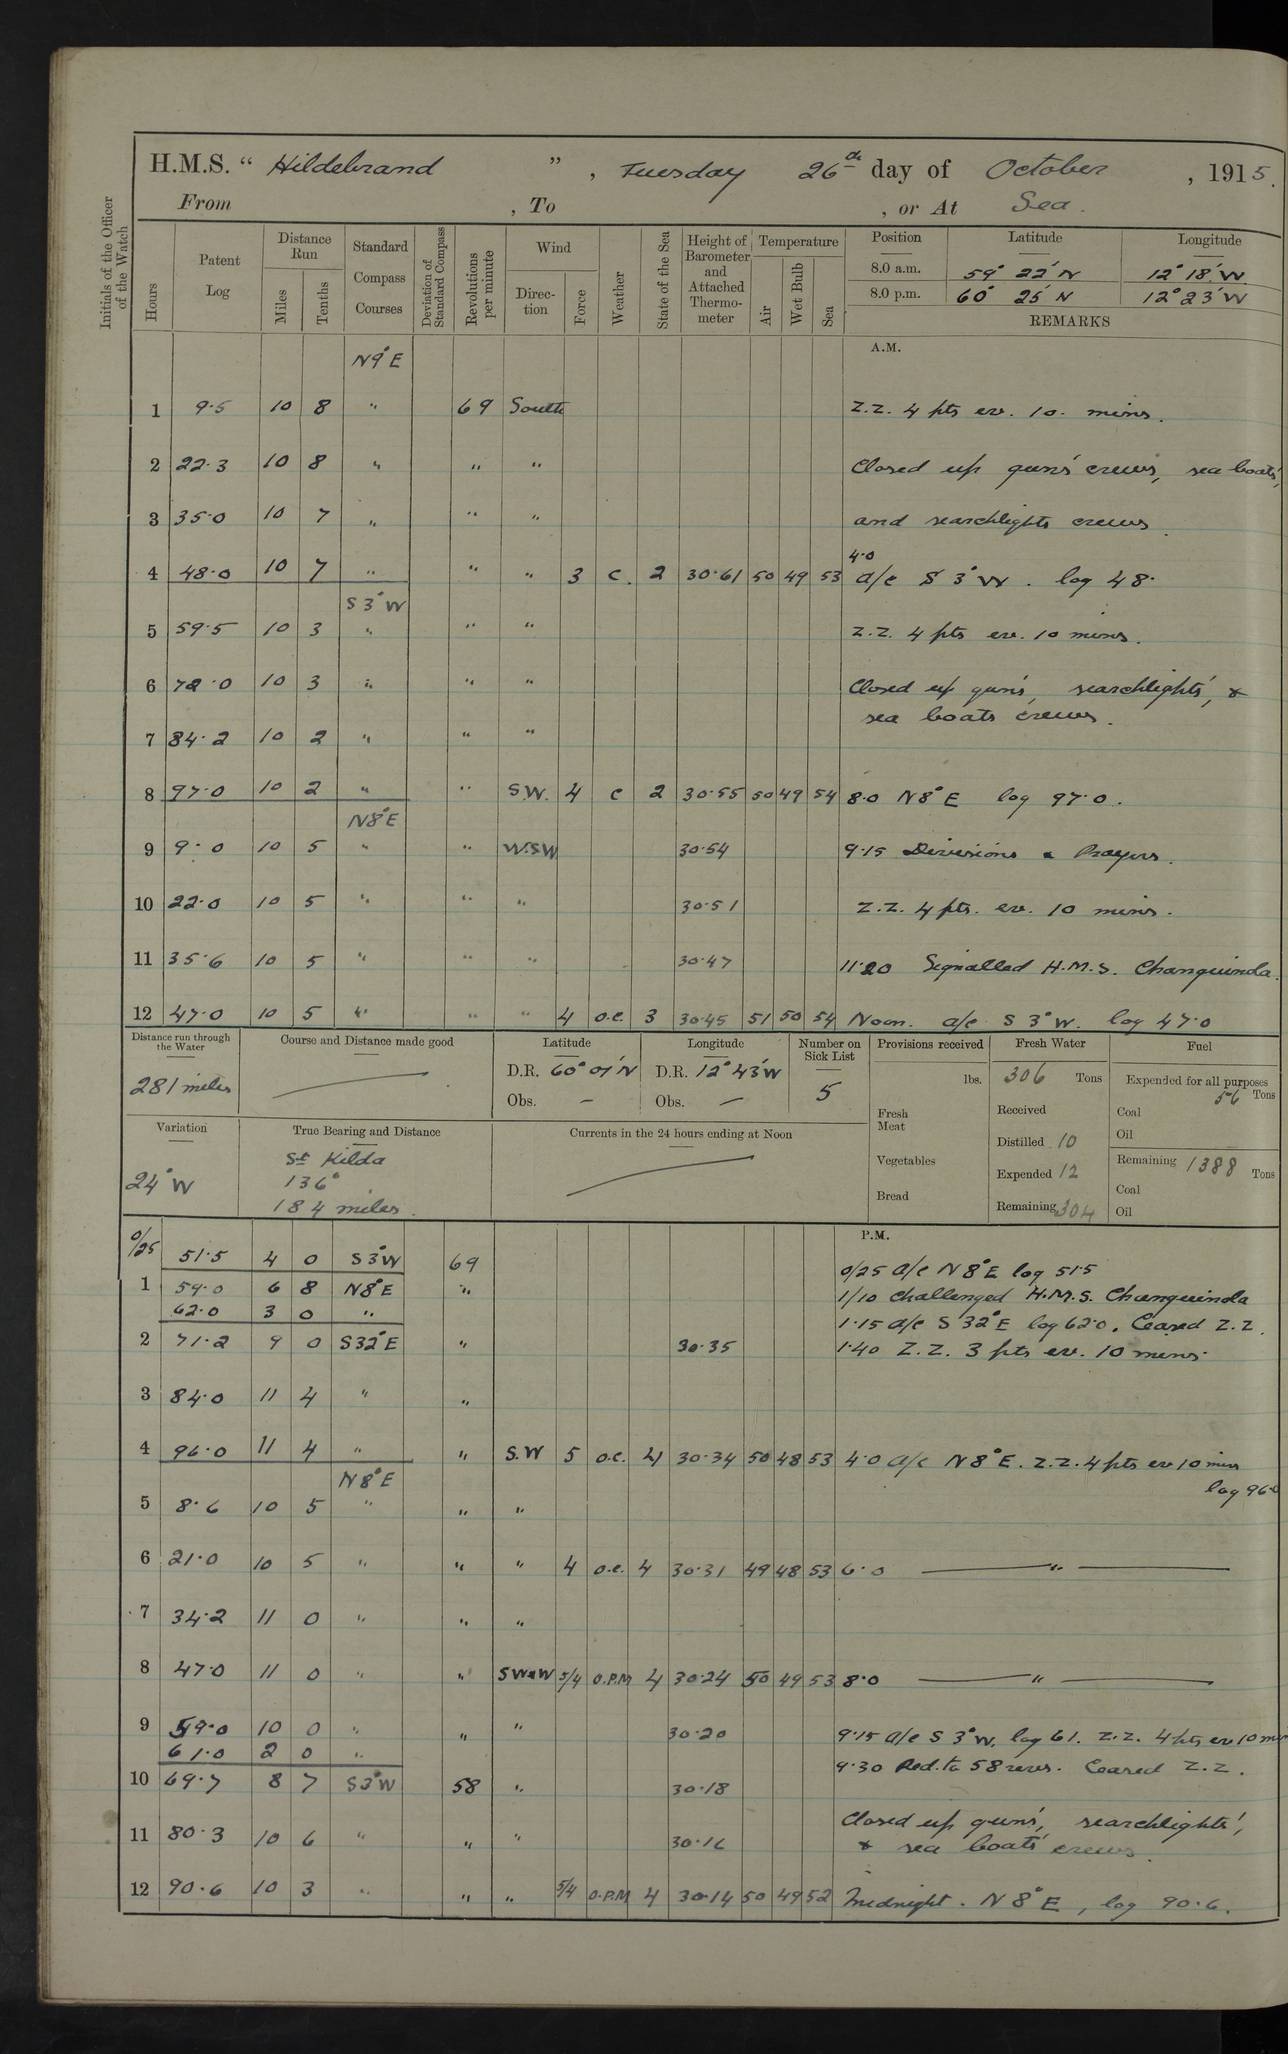 H.M.S. “ Hildebrand ”, Tuesday 26th day of October, 1915.
From , To , or At Sea.
Initials of the Officer of the Watch
Hours
Patent Log
Distance Run
Miles
Tenths
Standard Compass Courses
Deviation of Standard Compass
Revolutions per minute
Wind
Direction
Force
Weather
State of the Sea
Height of Barometer and Attached Thermometer
Temperature
Air
Wet Bulb
Sea
Position Latitude Longitude
8.0 a.m. 59° 22' N 12° 18' W.
8.0 p.m. 60° 25' N 12° 23' W
REMARKS
N9°E A.M.
1 9.5 10 8 " 69 South Z.Z. 4 pts ev. 10. mins.
2 22.3 10 8 " " " Closed up gun's crews, sea boats',
3 35.0 10 7 " " " and searchlights crews
4.0
4 48.0 10 7 " " " 3 c. 2 30.61 50 49 53 a/c S 3° W. log 48.
S 3° W
5 59.5 10 3 " " " Z.Z. 4 pts ev. 10 mins.
6 72.0 10 3 " " " Closed up gun's, searchlights', &
sea boats crews.
7 84.2 10 2 " " "
8 97.0 10 2 " " S.W. 4 c 2 30.55 50 49 54 8.0 N8°E log 97.0.
N8°E
9 9.0 10 5 " " W.S.W 30.54 9.15 Divisions & Prayers.
10 22.0 10 5 " " " 30.51 Z.Z. 4 pts. ev. 10 mins.
11 35.6 10 5 " " " 30.47 11.20 Signalled H.M.S. Changuinola.
12 47.0 10 5 " " " 4 o.c. 3 30.45 51 50 54 Noon. a/c S 3° W. log 47.0
Distance run through the Water
281 miles
Course and Distance made good
Latitude
D.R. 60° 01' N
Obs. —
Longitude
D.R. 12° 43' W
Obs. —
Number on Sick List
5
Provisions received
lbs.
Fresh Meat
Vegetables
Bread
Fresh Water
306 Tons
Received
Distilled 10
Expended 12
Remaining 304
Fuel
Expended for all purposes
56 Tons
Coal
Oil
Remaining 1388 Tons
Coal
Oil
Variation
24° W
True Bearing and Distance
St Kilda
136°
184 miles.
Currents in the 24 hours ending at Noon
P.M.
0/25 51.5 4 0 S3°W 69 0/25 a/c N 8° E log 51.5
1 59.0 6 8 N8°E " 1/10 Challenged H.M.S. Changuinola
62.0 3 0 " 1.15 a/c S 32° E log 62.0. Ceased Z.Z.
2 71.2 9 0 S32°E " 30.35 1.40 Z.Z. 3 pts ev. 10 mins.
3 84.0 11 4 " "
4 96.0 11 4 " " S.W 5 o.c. 4 30.34 50 48 53 4.0 a/c N 8° E. Z.Z. 4 pts ev 10 mins
N8°E log 96.0
5 8.6 10 5 " " "
6 21.0 10 5 " " " 4 o.c. 4 30.31 49 48 53 6.0 — " —
7 34.2 11 0 " " "
8 47.0 11 0 " " SWxW 5/4 O.P.M 4 30.24 50 49 53 8.0 — " —
9 59.0 10 0 " " " 30.20 9.15 a/c S 3° W. log 61. Z.Z. 4 pts ev 10 min
61.0 2 0 " 9.30 Red. to 58 revs. Ceased Z.Z.
10 69.7 8 7 S3°W 58 " 30.18
11 80.3 10 6 " " " 30.16 Closed up gun's, searchlights',
& sea boats' crews.
12 90.6 10 3 " " " 5/4 O.P.M 4 30.14 50 49 52 Midnight. N 8° E, log 90.6.